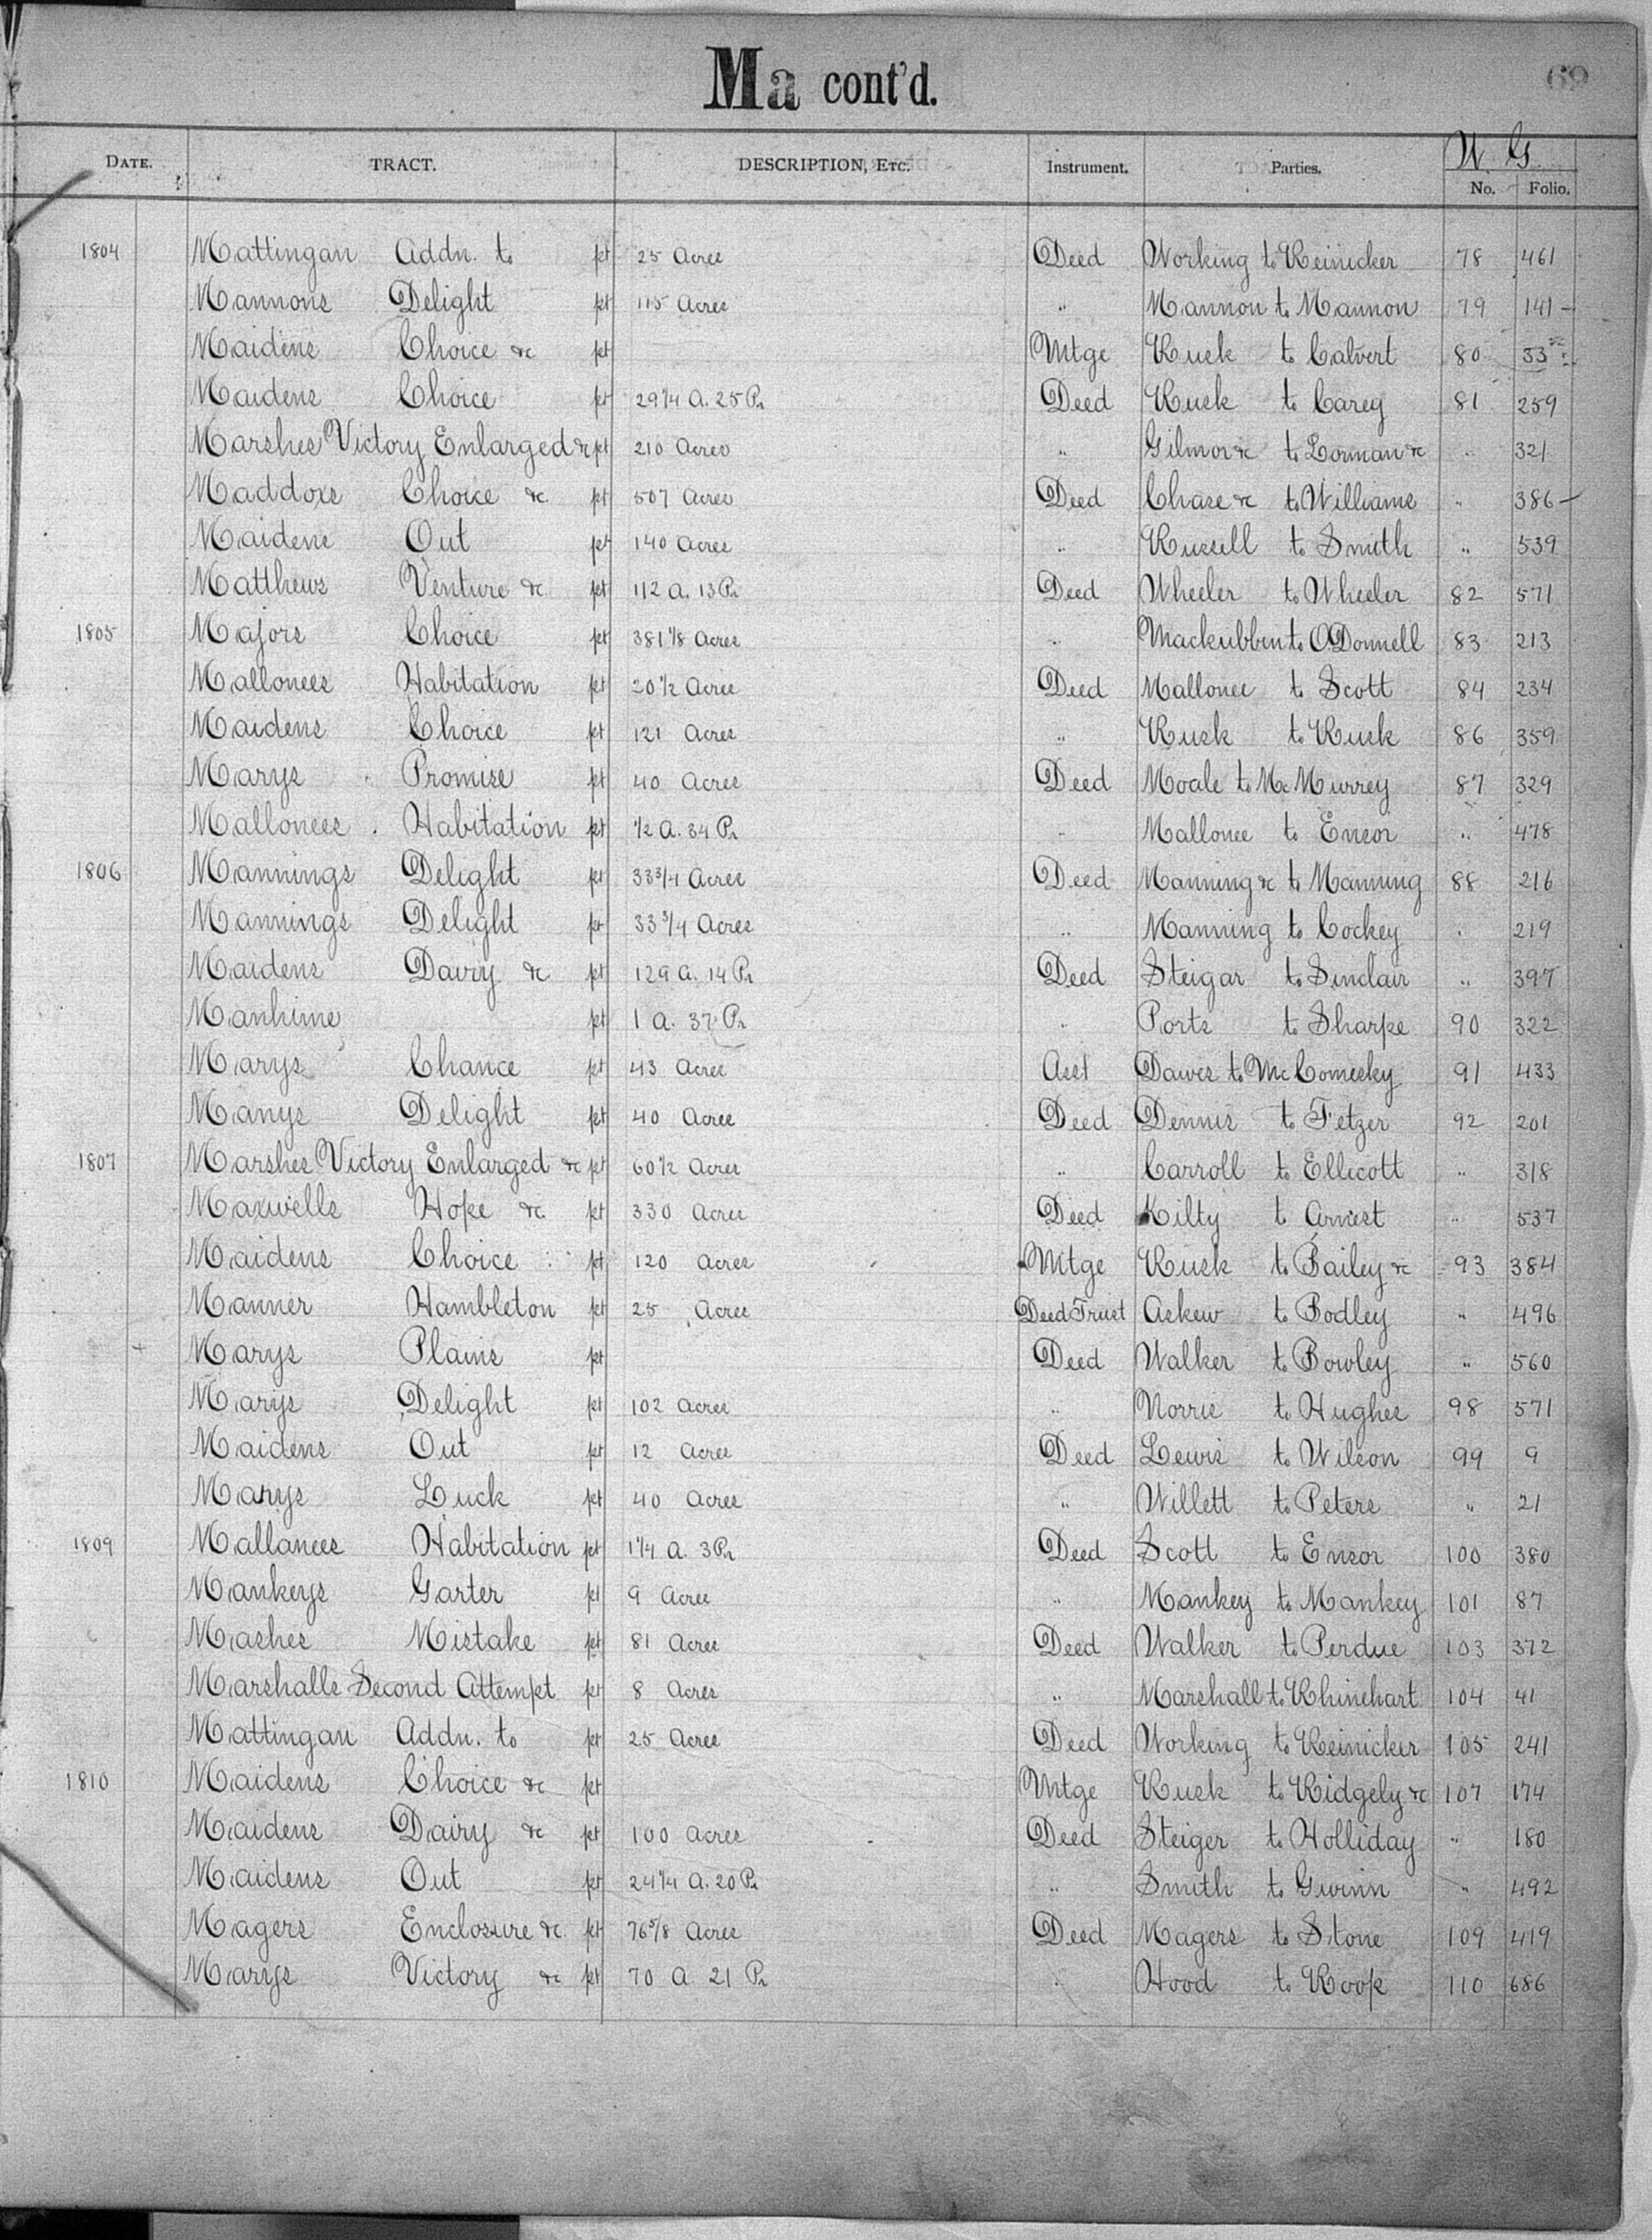 Ma cont'd.
69
DATE. TRACT. DESCRIPTION, ETC. Instrument. Parties. W. G. No. Folio.
1804 Mattingan Addn. to pt 25 Acres Deed Working to Reinicker 78 461
Mannons Delight pt 115 Acres " Mannon to Mannon 79 141
Maidens Choice &c pt Mtge Rusk to Calvert 80 33
Maidens Choice pt 29 1/4 A. 25 Pr Deed Rusk to Carey 81 259
Marshes Victory Enlarged &c pt 210 Acres " Gilmor &c to Lorman &c " 321
Maddoxs Choice &c. pt 507 Acres Deed Chase &c to Williams " 386
Maidens Out pt 140 Acres " Russell to Smith " 539
Matthews Venture &c pt 112 A. 13 Pr Deed Wheeler to Wheeler 82 571
1805 Majors Choice pt 381 1/8 Acres " Mackubbin to O'Donnell 83 213
Mallonees Habitation pt 20 1/2 Acres Deed Mallonee to Scott 84 234
Maidens Choice pt 121 Acres " Rusk to Rusk 86 359
Marys Promise pt 40 Acres Deed Moale to McMurrey 87 329
Mallonees Habitation pt 1/2 A. 34 Pr " Mallonee to Ensor " 478
1806 Mannings Delight pt 33 3/4 Acres Deed Manning &c to Manning 88 216
Mannings Delight pt 33 3/4 Acres " Manning to Cockey " 219
Maidens Dairy &c pt 129 A. 14 Pr Deed Steigar to Sinclair " 397
Manhime pt 1 A. 37 Pr " Ports to Sharpe 90 322
Marys Chance pt 43 Acres Asst Dawes to McComesky 91 433
Manys Delight pt 40 Acres Deed Dennis to Fetzer 92 201
1807 Marshes Victory Enlarged &c pt 60 1/2 Acres " Carroll to Ellicott " 318
Maxwells Hope &c. pt 330 Acres Deed Kilty to Arnest " 537
Maidens Choice pt 120 Acres Mtge Rusk to Bailey &c 93 384
Manner Hambleton pt 25 Acres Deed Trust Askew to Bodley " 496
Marys Plains pt Deed Walker to Bowley " 560
Marys Delight pt 102 Acres " Norris to Hughes 98 571
Maidens Out pt 12 Acres Deed Lewis to Wilson 99 9
Marys Luck pt 40 Acres " Willett to Peters " 21
1809 Mallanees Habitation pt 1 1/4 A. 3 Pr Deed Scott to Ensor 100 380
Mankeys Garter pt 9 Acres " Mankey to Mankey 101 87
Mashes Mistake pt 81 Acres Deed Walker to Perdue 103 372
Marshalls Second Attempt pt 8 Acres " Marshall to Rhinehart 104 41
Mattingan Addn. to pt 25 Acres Deed Working to Reinicker 105 241
1810 Maidens Choice &c pt Mtge Rusk to Ridgely &c 107 174
Maidens Dairy &c pt 100 Acres Deed Steiger to Holliday " 180
Maidens Out pt 24 1/4 A. 20 Pr " Smith to Gwinn " 492
Magers Enclosure &c pt 76 5/8 Acres Deed Magers to Stone 109 419
Marys Victory &c pt 70 A 21 Pr " Hood to Roop 110 686